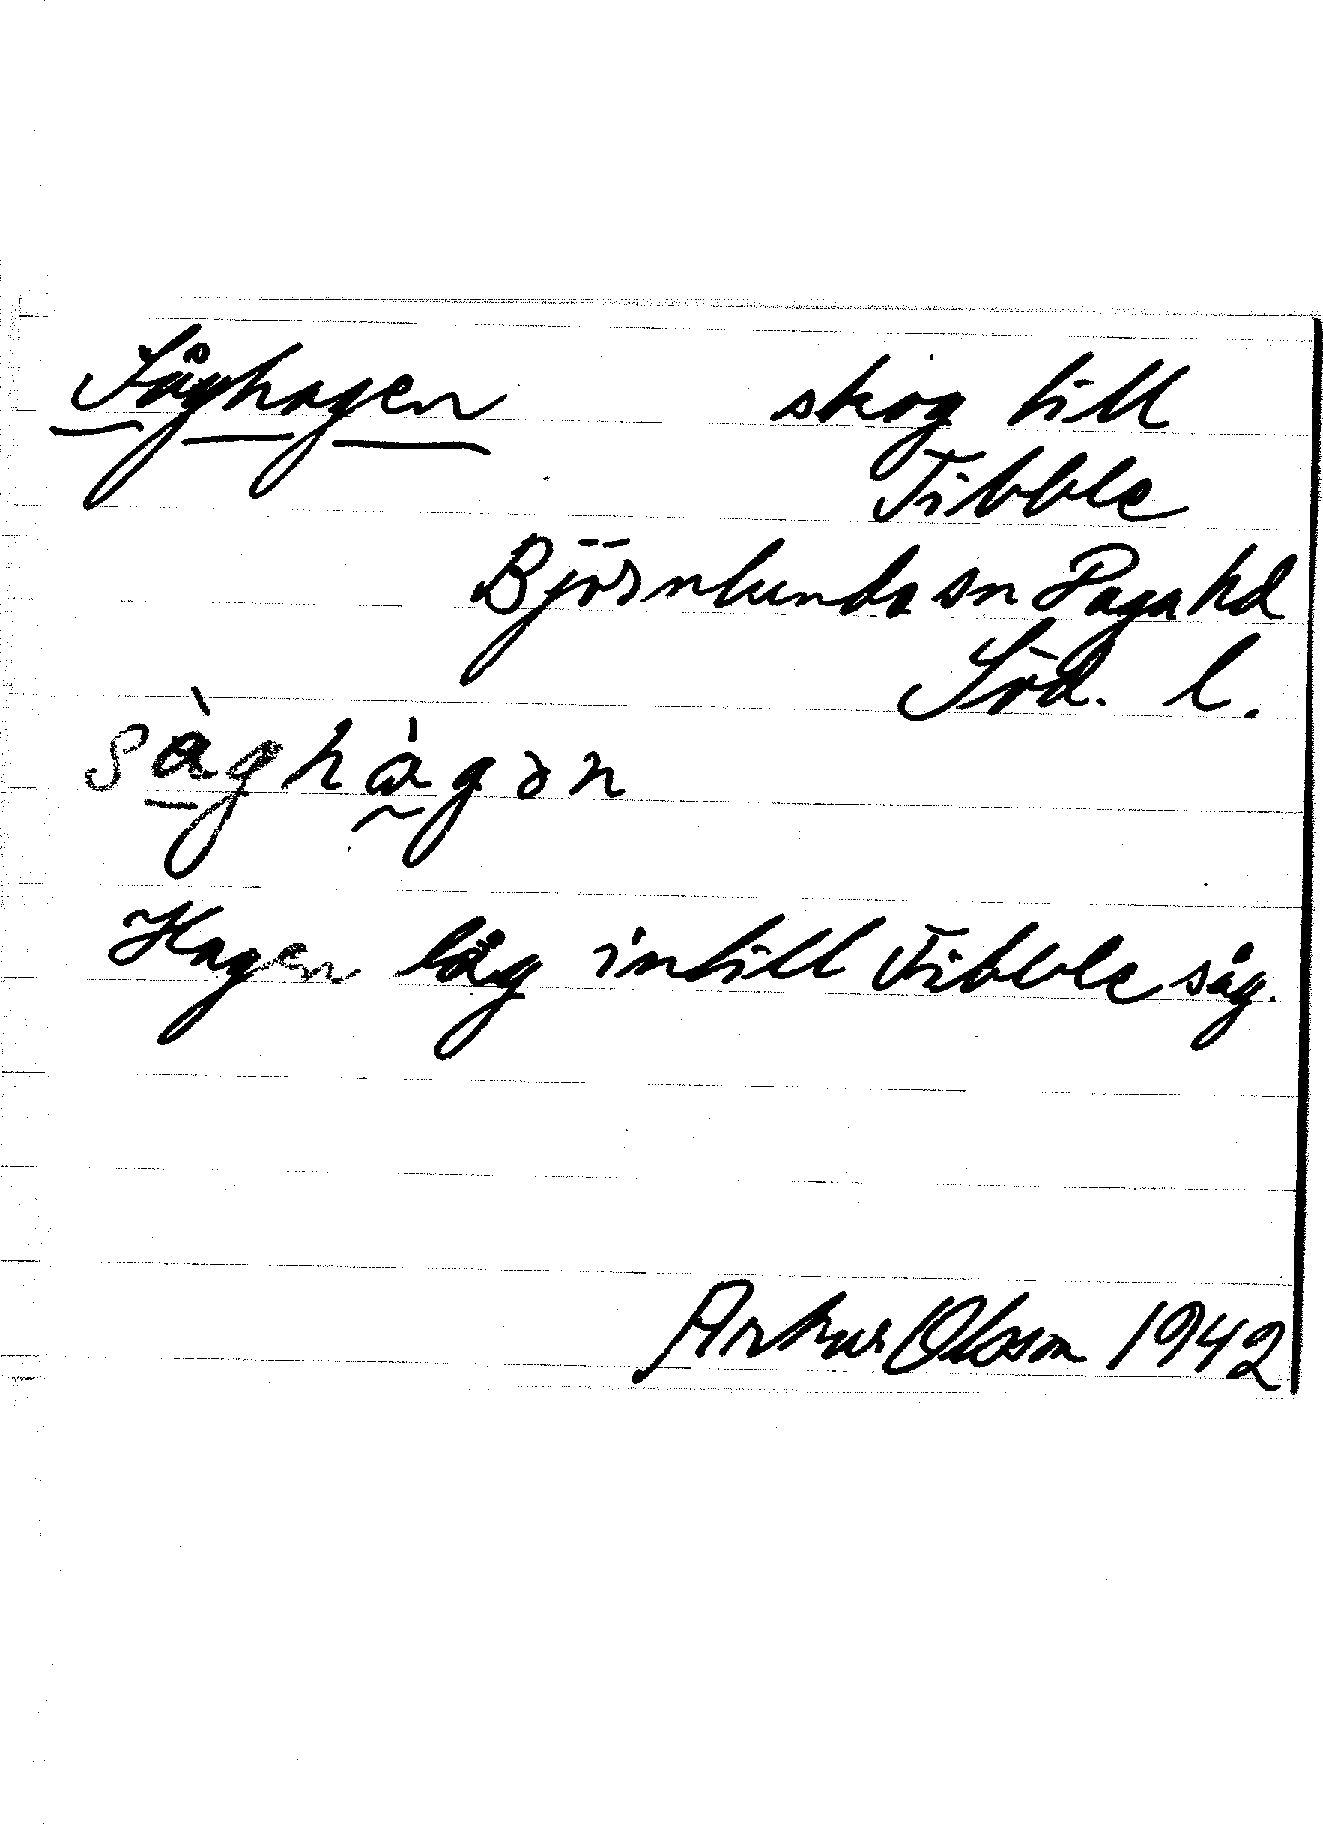 Såghagen skog till
Tibble
Björnlunda sn Daga hd
Söd. l.
sàghàgən
Hagen låg intill Tibble såg.
Arthur Olsson 1942